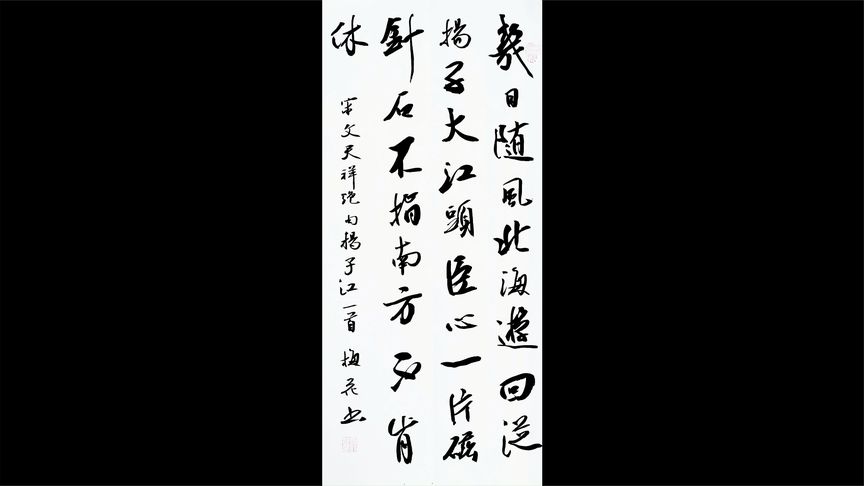 幾日随風北海遊回從
揚子大江頭臣心一片磁
針石不指南方不肯
休
宋文天祥絶句揚子江一首 梅花书